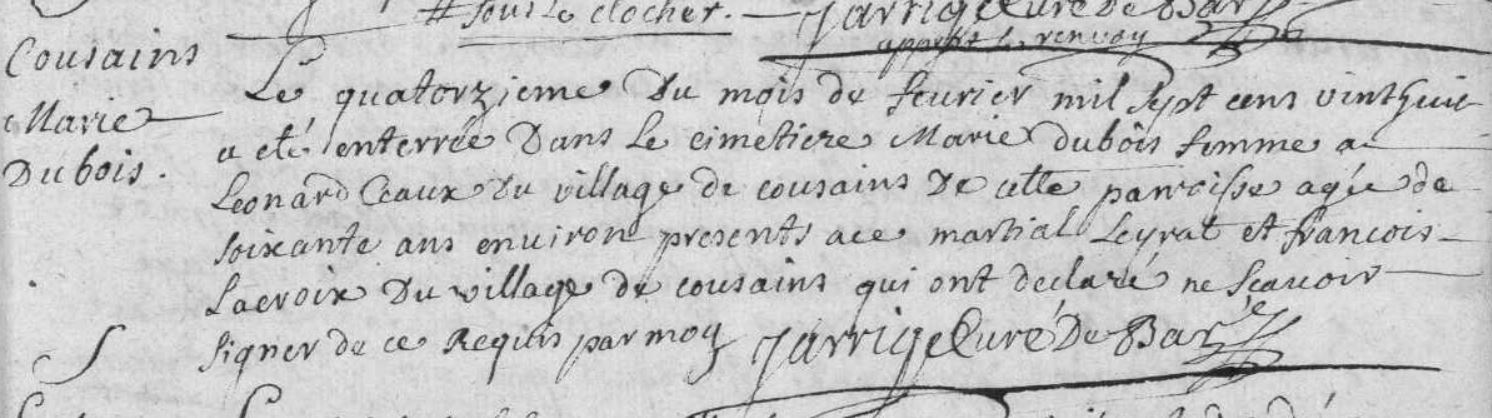 # sous le clocher. Jarrige Curé De Bar
app[...] le renvoy
Cousains
Marie
Dubois.
Le quatorzieme Du mois de feurier mil sept cens vinthuit
a eté enterrée Dans Le cimetiere Marie dubois femme a
Leonard Ceaux Du village de cousains De cette parroisse agée de
soixante ans environ presents a ce martial Leyrat et francois
Lacroix Du village de cousains qui ont declaré ne scauoir
signer de ce Requis par moy Jarrige Curé De Bar